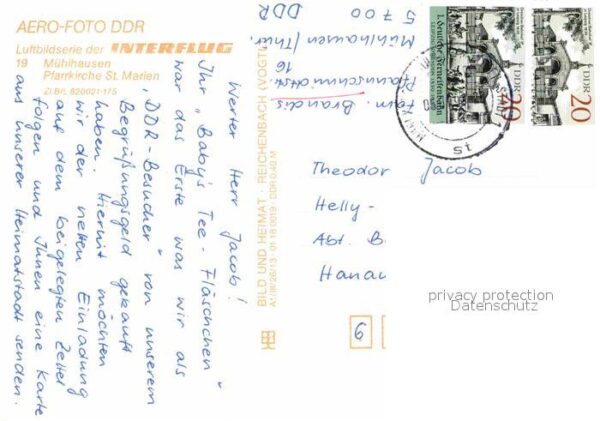 AERO-FOTO DDR
Luftbildserie der INTERFLUG
19 Mühlhausen
Pfarrkirche St. Marien
ZLB/L 820021-175
Werter Herr Jacob!
Ihr „Baby's Tee-Fläschchen"
war das Erste was wir als
„DDR-Besucher" von unserem
Begrüßungsgeld gekauft
haben. Hiermit möchten
wir der netten Einladung
auf dem beigelegten Zettel
folgen und Ihnen eine Karte
aus unserer Heimatstadt senden.
BILD UND HEIMAT · REICHENBACH (VOGTL
Fam. Brandis
16
Mühlhausen/Thür.
5700
DDR
1. deutsche Ferneisenbahn
DDR
20
DDR
20
Theodor Jacob
Helly-
Abt. B
Hanau
6
privacy protection
Datenschutz